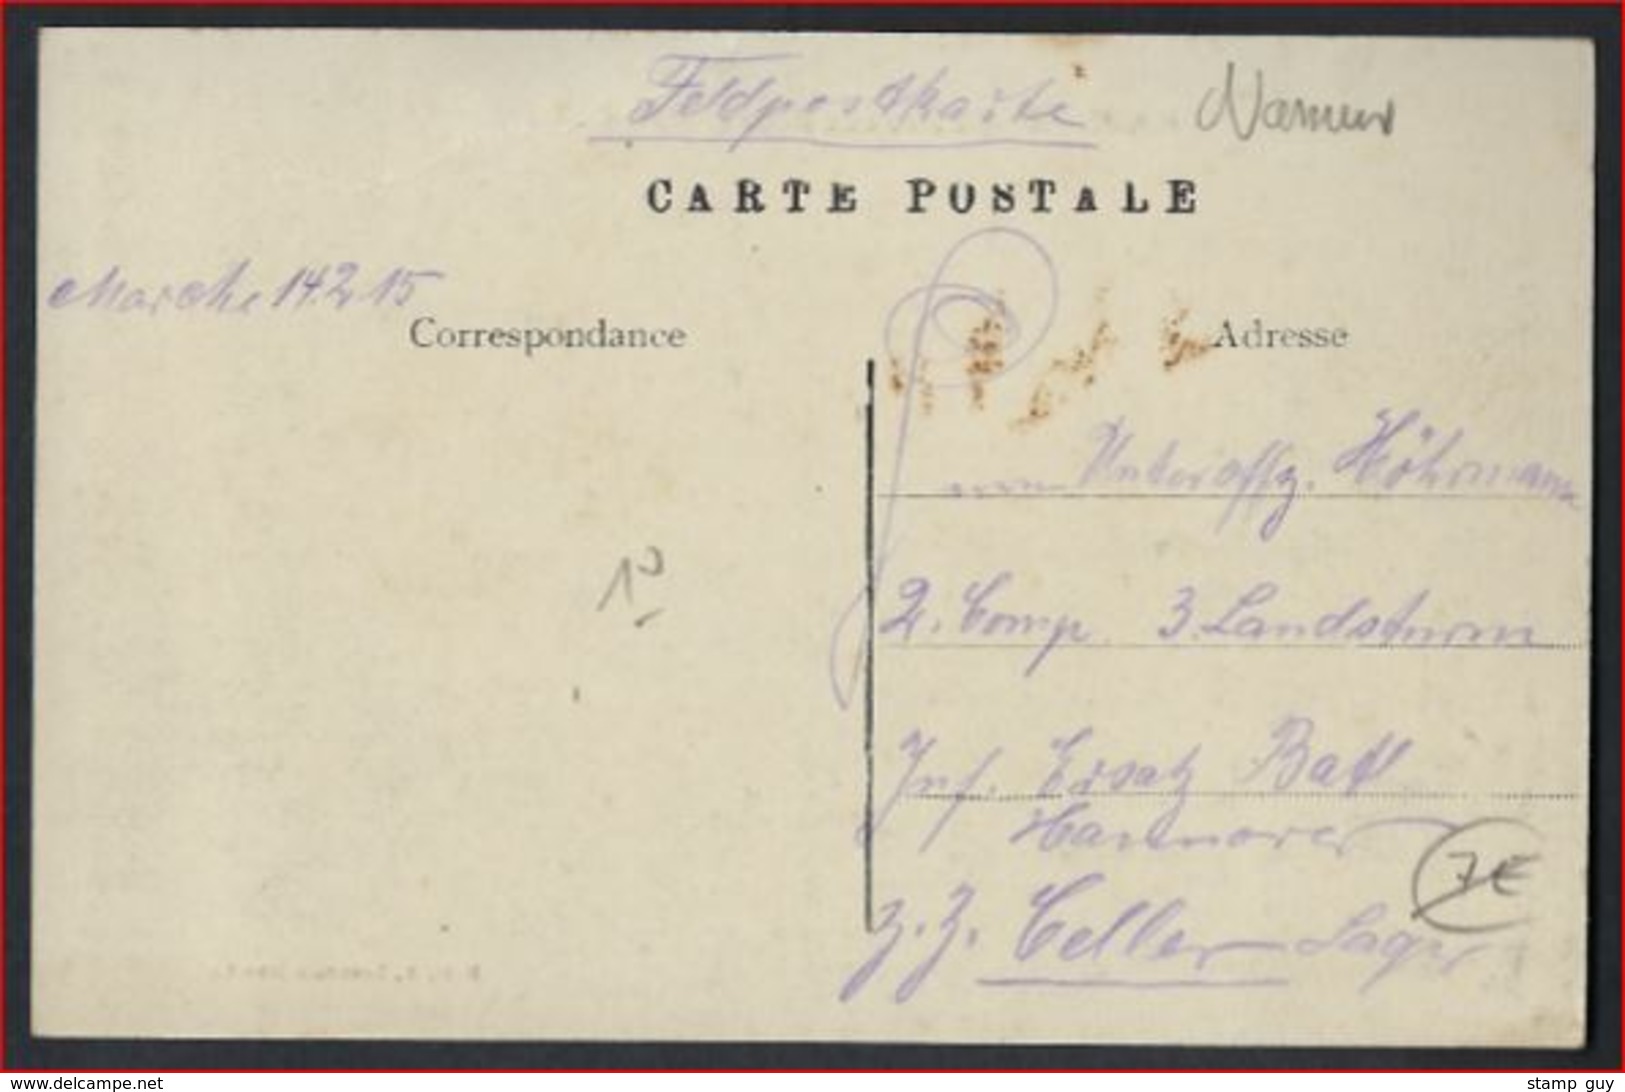 Feldpostkarte
Namur
CARTE POSTALE
Marche 14 2 15
Correspondance
Adresse
Unteroffz. Höhrmann
2. Comp. 3. Landsturm
Inf. Ersatz Batl
Hannover
10
7€
z. Z. Celler Lager
www.delcampe.net
stamp guy